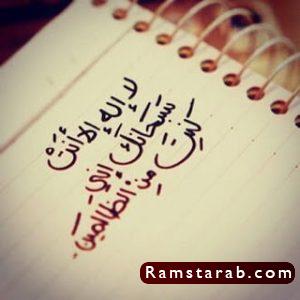 لا إله إلا أنتْ
سبَحَانَكَ إنِي
كنِتَ
مِنِ الظالمِينَ.
Ramstarab.com